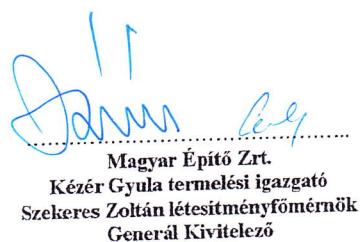 Magyar Építő Zrt.
Kézér Gyula termelési igazgató
Szekeres Zoltán létesítményfőmérnök
Generál Kivitelező